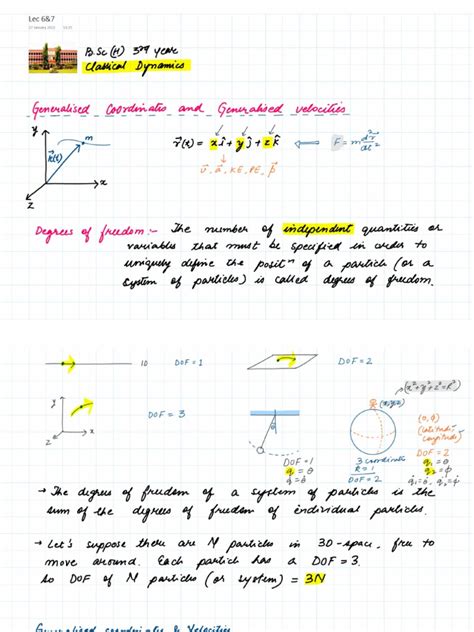 Lec 6&7
B.Sc (H) 3rd year
Classical Dynamics
Generalised Coordinates and Generalised velocities
y m
r⃗(t) = x î + y ĵ + z k̂ F = m d²r⃗/dt²
x
z
v⃗, a⃗, KE, PE, p⃗
Degrees of freedom:- The number of independent quantities or
variables that must be specified in order to
uniquely define the positⁿ of a particle (or a
system of particles) is called degrees of freedom.
1D DOF = 1 DOF = 2
(x²+y²+z²=R²)
y (x,y,z)
x
z
DOF = 3
θ
(θ, φ)
(latitude,
longitude)
DOF = 1
q₁ = θ
3 coordinates
k = 1
DOF = 2
DOF = 2
q₁ = θ
q₂ = φ
→ The degrees of freedom of a system of particles is the
sum of the degrees of freedom of individual particles.
→ Let's suppose there are N particles in 3D-space, free to
move around. Each particle has a DOF = 3.
So DOF of N particles (or system) = 3N
Generalised coordinates & Velocities